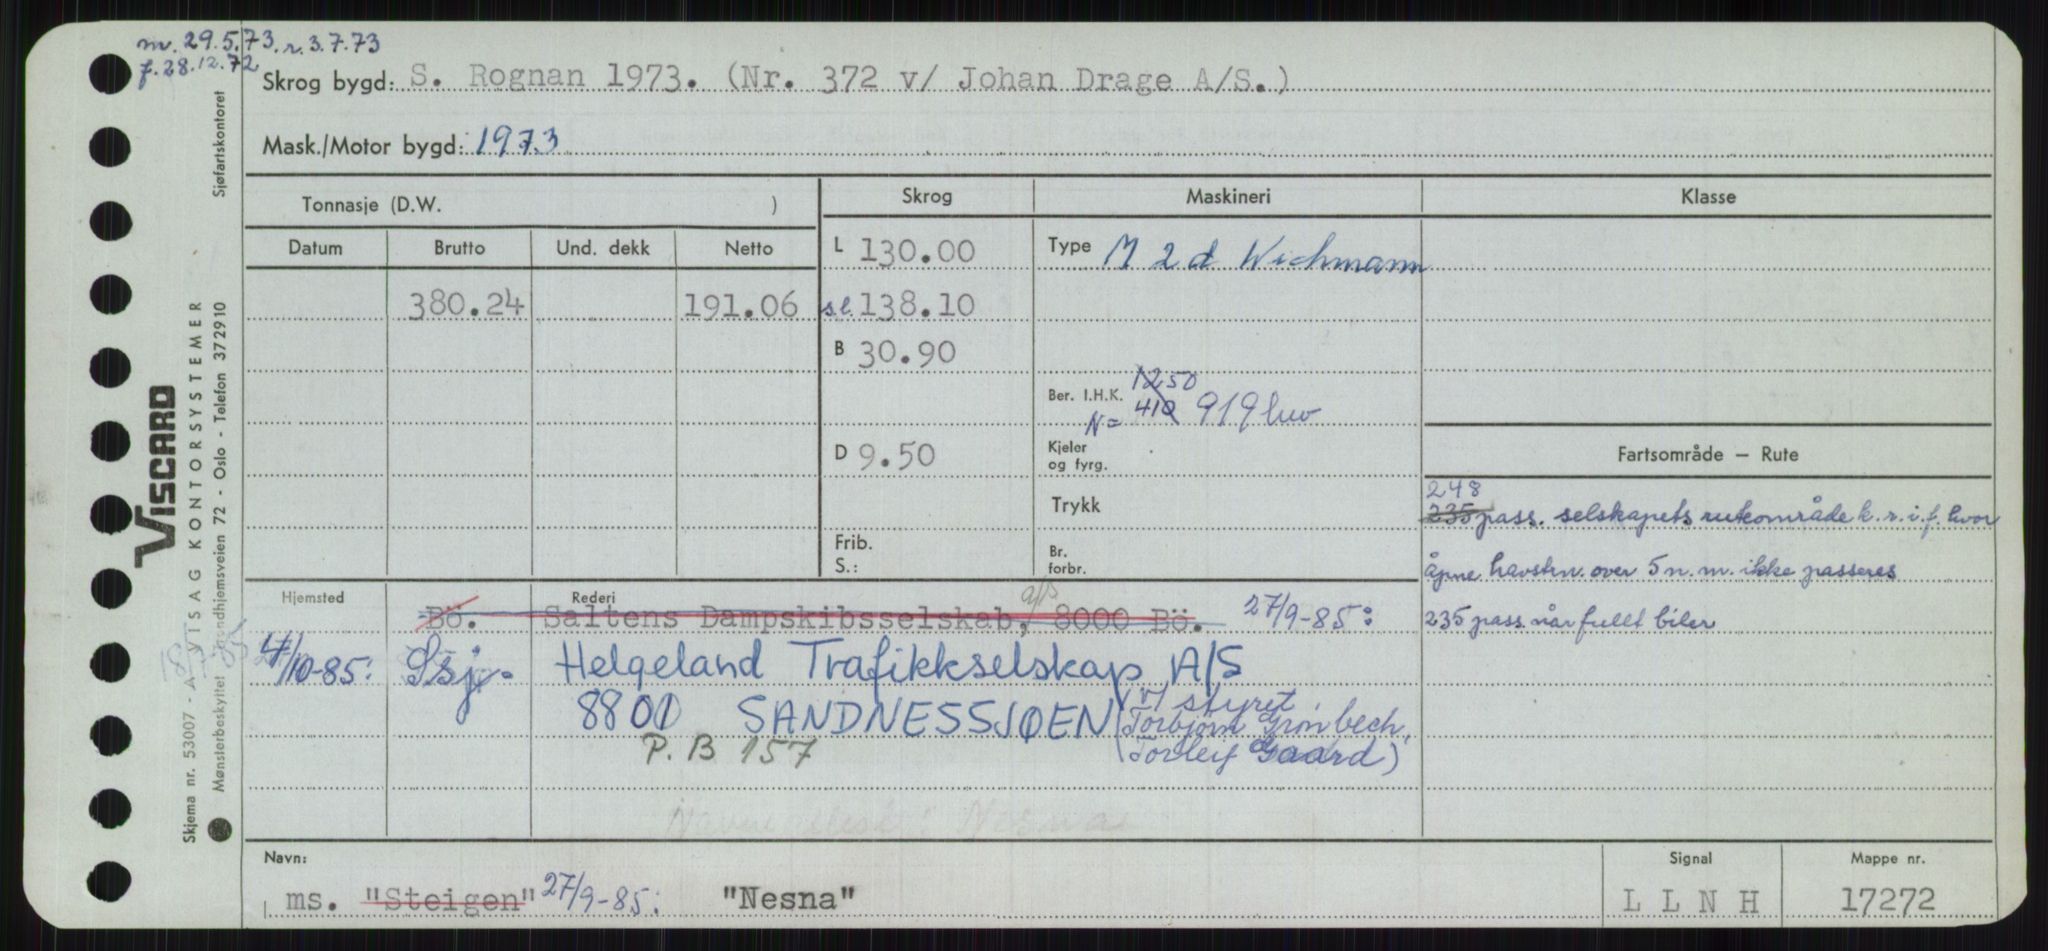 m. 29.5.73. r. 3.7.73
f. 28.12.72
Skrog bygd: S. Rognan 1973. (Nr. 372 v/ Johan Drage A/S.)
Mask./Motor bygd: 1973
Tonnasje (D.W. )
Skrog Maskineri Klasse
Datum Brutto Und. dekk Netto
L 130.00 Type M 2 d Wichmann
380.24 191.06 s.l. 138.10
B 30.90
1250
Ber. I.H.K. N= 410 919 hw
D 9.50
Kjeler og fyrg.
Fartsområde – Rute
Trykk
248
235 pass. selskapets ruteområde k.r.i.f. hvor
Frib.
S.:
Br. forbr.
åpne havstrn. over 5 n.m. ikke passeres
Hjemsted Rederi
Bö. Saltens Dampskibsselskab, a/s 8000 Bö. 27/9-85:
235 pass når fullt biler
4/10-85: Ssj. Helgeland Trafikkselskap A/S
8800 SANDNESSJØEN (v/ styret,
Torbjørn Grønbech,
P.B 157 Torleif Gaard)
Navn: Signal Mappe nr.
ms. "Steigen" 27/9-85: "Nesna" L L N H 17272
Sjøfartskontoret
VISCARD
VISAG KONTORSYSTEMER
Skjema nr. 53007 - A
Mønsterbeskyttet
Trondhjemsveien 72 - Oslo - Telefon 372910